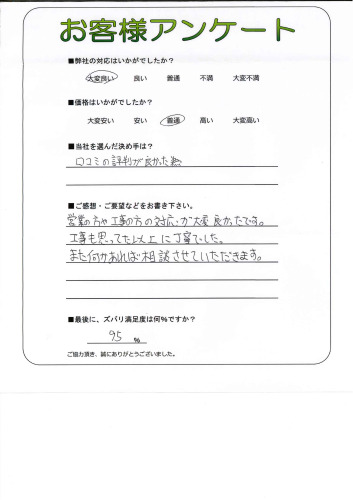 お客様アンケート
■弊社の対応はいかがでしたか？
大変良い 良い 普通 不満 大変不満
■価格はいかがでしたか？
大変安い 安い 普通 高い 大変高い
■当社を選んだ決め手は？
口コミの評判が良かった為
■ご感想・ご要望などをお書き下さい。
営業の方や工事の方の対応が大変良かったです。
工事も思ってた以上に丁寧でした。
また何かあれば相談させていただきます。
■最後に、ズバリ満足度は何%ですか？
95 %
ご協力頂き、誠にありがとうございました。